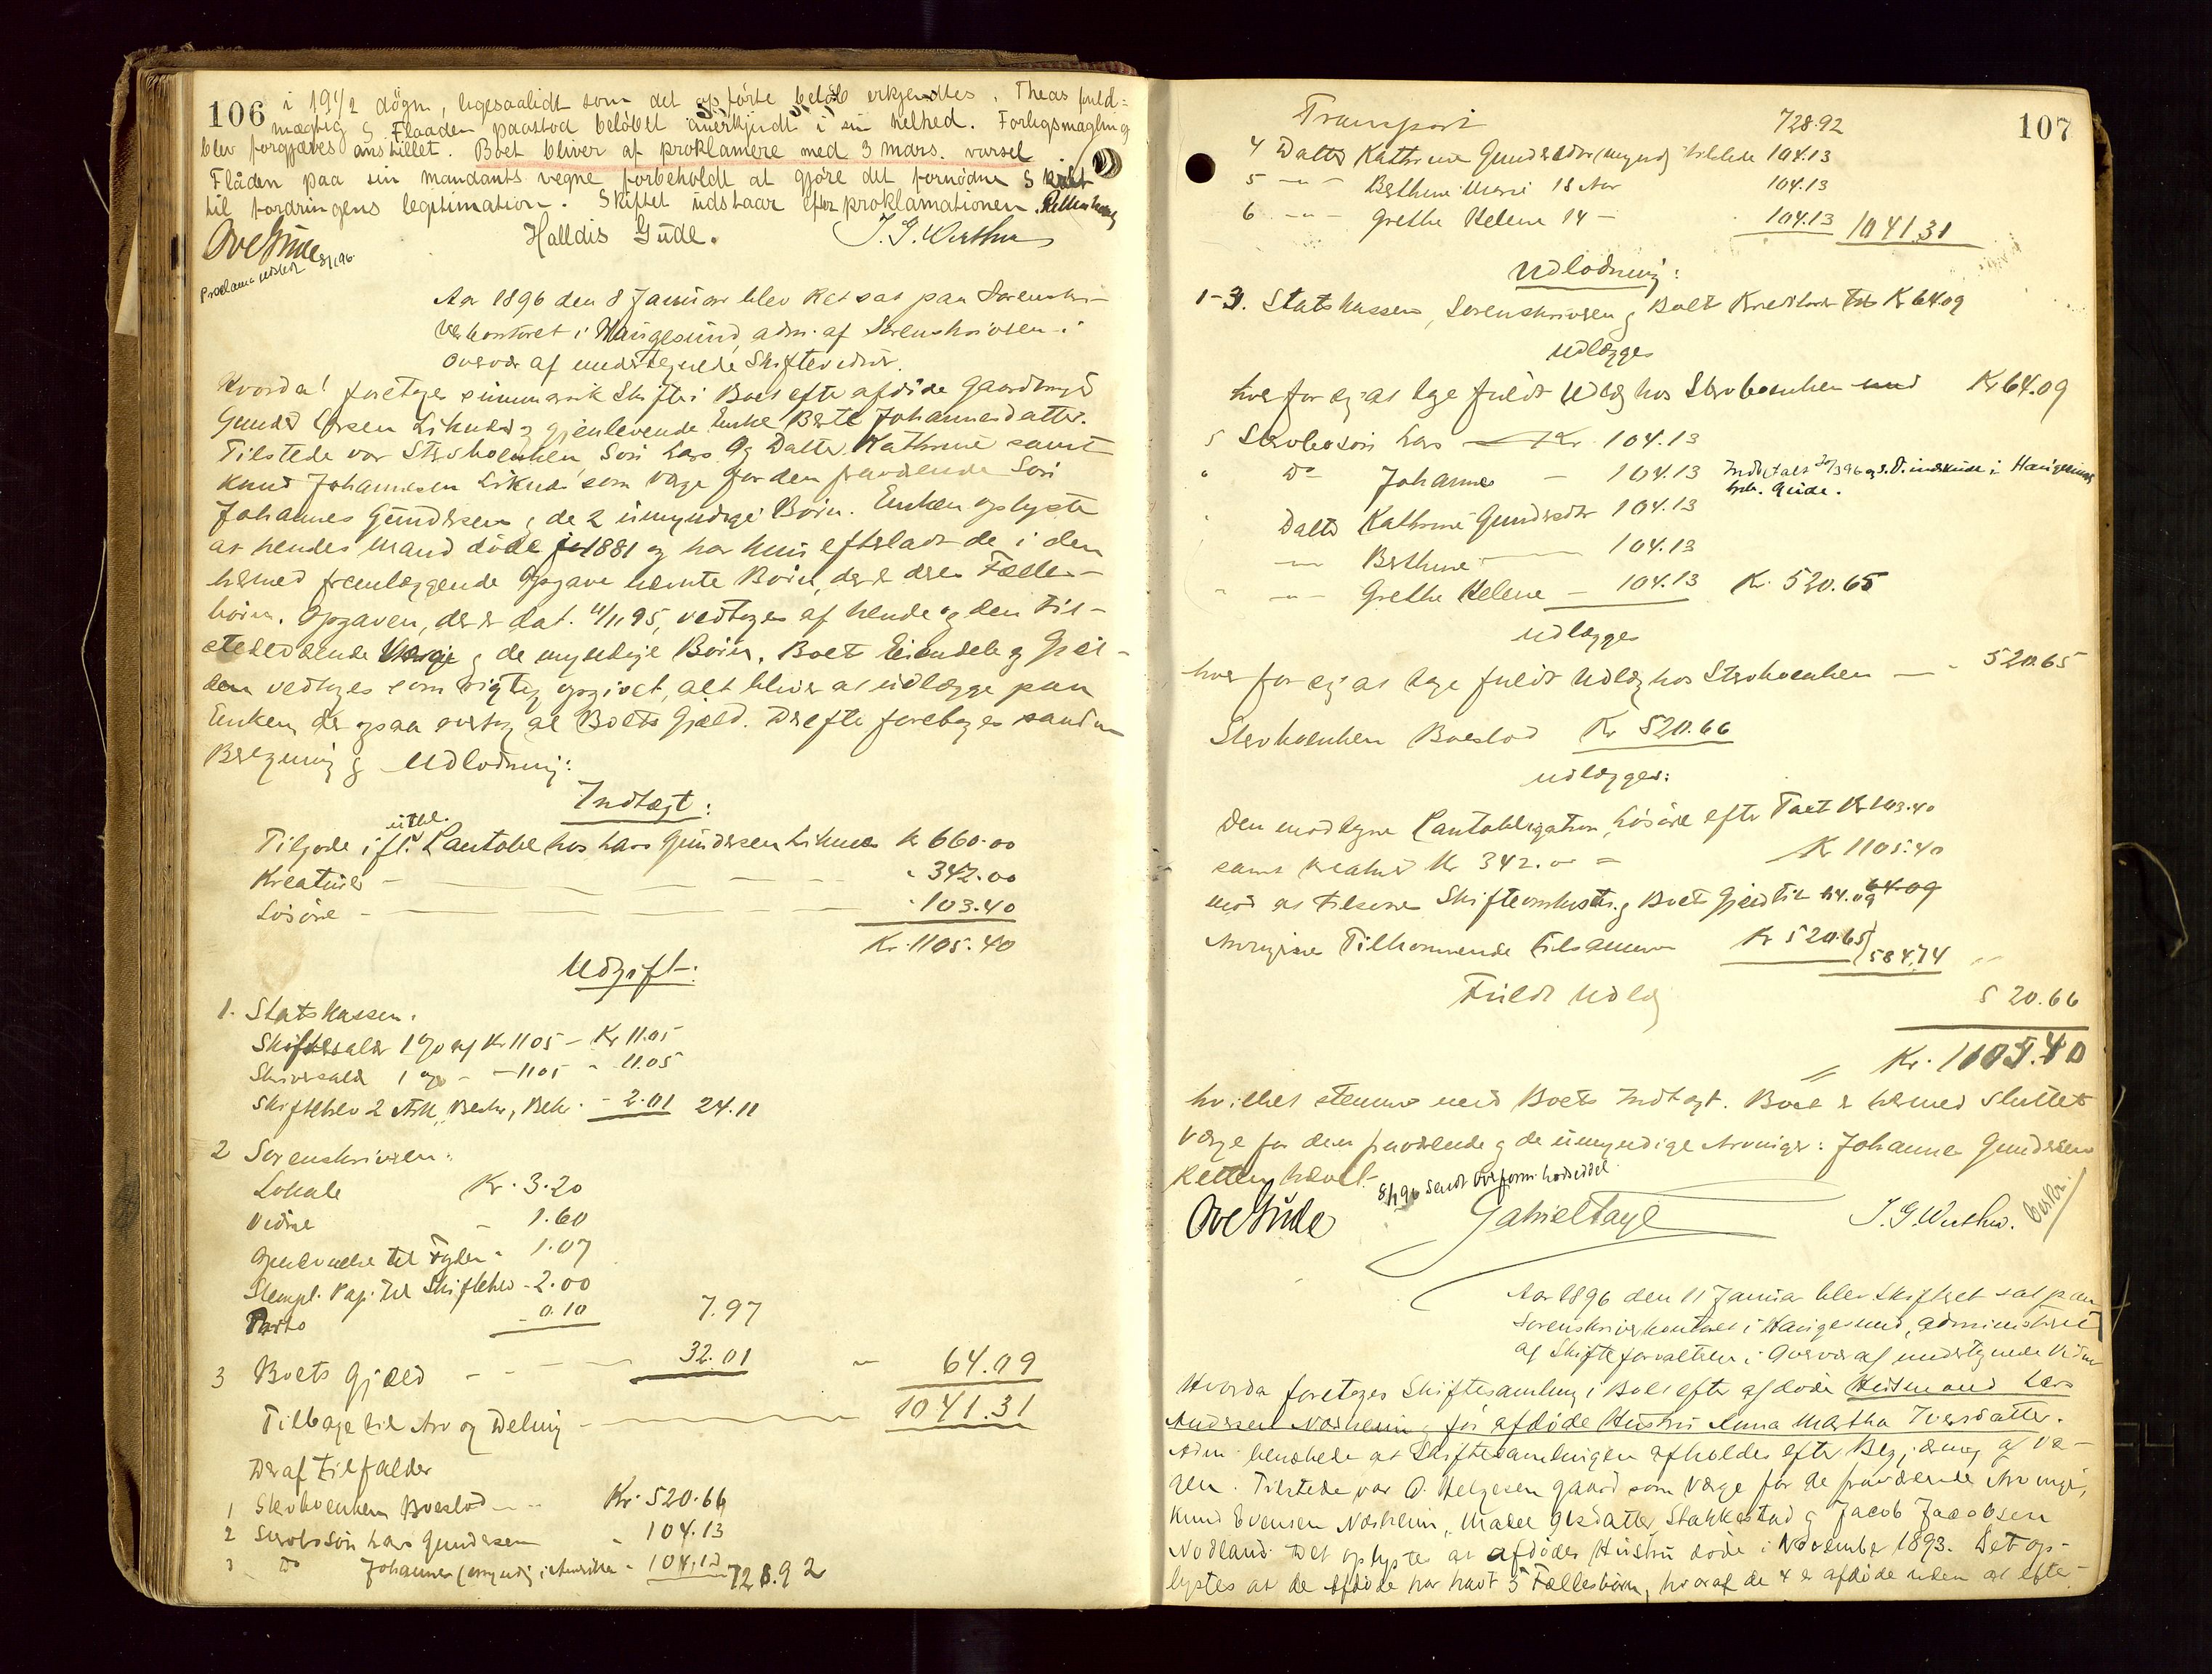 106 i 19 1/2 dögn, ligesaalidt som det opförte beløb erkjendtes. Theas fuld=
mægtig og Flaaden paastod beløbet anerkjendt i sin helhed. Forligsmægling
blev forgjæves anstillet. Boet bliver at proklamere med 3 mars. varsel
Flåden paa sin mandants vegne forbeholdt at gjöre det fornödne
til fordringens legitimation. Skiftet udstaar efter proklamationen. Retten hævet
Ove Gude Halldis Gude. J. G. Wersthu
Proclama udstedt 8/1 96.
Aar 1896 den 8 Januar blev Ret sat paa Sorenskri-
verkontoret i Haugesund, adm. af Sorenskriveren i
Overvær af undertegnede Skiftevidner.
Hvorda! foretoges summarisk Skifte i Boet efter afdöde Gaardbruger
Gunder Larsen Liknes og gjenlevende Enke Berte Johannesdatter.
Tilstede var Stervboenken, Søn Lars og Datter Kathrine samt
Knud Johannesen Liknes som Værge for den fraværende Søn
Johannes Gundersen og de 2 umyndige Börn. Enken oplyste
at hendes Mand döde i 1881 og har hun efterladt de i den
hermed fremlæggende Opgave nævnte Börn, der er deres Fælles-
börn. Opgaven, der er dat. 4/11 95, vedtoges af hende og den til-
stedeværende Værge og de myndige Börn. Boets Eiendele og Gjæl-
den vedtoges som rigtig opgivet, alt bliver at udlægge paa
Enken, der ogsaa overtog al Boets Gjæld. Derefter foretoges saadan
Beregning og Udlodning:
Indtægt:
Tilgode ifl. uthl. Pantobl. hos Lars Gundersen Liknes Kr 660.00
Kreaturer - " 342.00
Lösöre - " 103.40
Kr. 1105.40
Udgift:
1. Statskassen:
Skiftesalær 1 % af Kr 1105 - Kr 11.05
Skriversalær 1 % - - 1105 - 11.05
Skiftebrev 2 Ark, Beskr, Bekr. - 2.01 24.11
2 Sorenskriveren:
Lokale Kr. 3.20
Vidne - 1.60
Gjenlevelse til Fogden - 1.07
Stempl. Pap. til Skiftebrev - 2.00
Porto 0.10 7.97
3 Boets Gjæld - - - 32.01 64.09
Tilbage til Arv og Deling - 1041.31
Deraf tilfalder
1 Stervboenken Boeslod - - Kr. 520.66
2 Stervboson Lars Gundersen " 104.13
3 Do Johannes (myndig i Amerika - 104.13 728.92
107
Transport 728.92
4 Datter Kathrine Gundersdtr (myndig) tilstede 104.13
5 - " - Berthine Marie 18 Aar 104.13
6 - " - Grethe Helene 14 - 104.13 1041.31
Udlodning:
1-3. Statskassen, Sorenskriveren og Boets Kreditorer tils Kr 64.09
Udlægges
hver for sig at tage fuldt Udlæg hos Stervboenken med Kr 64.09
Stervboson Lars Kr. 104.13
" Do Johannes - 104.13 Indbetalt 20/3 96 og s. D. indskudt i Haugesunds Spb. Gude.
Datter Kathrine Gundersdtr 104.13
- " - Berthine - 104.13
" - " - Grethe Helene - 104.13 Kr. 520.65
Udlægges
hver for sig at tage fuldt Udlæg hos Stervboenken - 520.65
Stervboenken Boeslod Kr 520.66
udlægges:
Den modtagne Pantobligation, Lösöre efter Taxt Kr 103.40
samt Kreatur Kr 342.00 = Kr 1105.40
mod at tilsvare Skifteomkostn. og Boets Gjæld til 64.09 64.09
Arvingernes Tilkommende tilsammen Kr 520.65 584.74
Fuldt Udlæg 520.66
Kr. 1105.40
hvilket stemmer med Boets Indtægt. Boet er hermed sluttet
Værge for den fraværende og de umyndige Arvinger: Johannes Gundersen
Retten hævet 8/1 96 Sendt Overform. hovseddel.
Ove Gude Gabriel J. G. Wersthu. Beskr.
Aar 1896 den 11 Januar blev Skifteret sat paa
Sorenskriverkontoret i Haugesund, administreret
af Skifteforvalteren i Overvær af undertegnede Vidner
Hvorda foretoges Skiftesamling i Boet efter afdøde Husmand Lars
Andersen Næsheim og før afdøde Hustru Anna Martha Iversdatter.
Adm. bemærkede at Skiftesamlingen afholdes efter Begjæring af Væ-
gen. Tilstede var O. Helgesen Gaard som Værge for de fraværende Arvinger,
Knud Evensen Næsheim, Malene Olsdatter Stakkestad og Jacob Jacobsen
Nodland. Det oplystes at afdødes Hustru døde i November 1893. Det op-
lystes at de afdøde har havt 5 Fællesbörn, hvoraf de 4 er afdøde uden at efter-